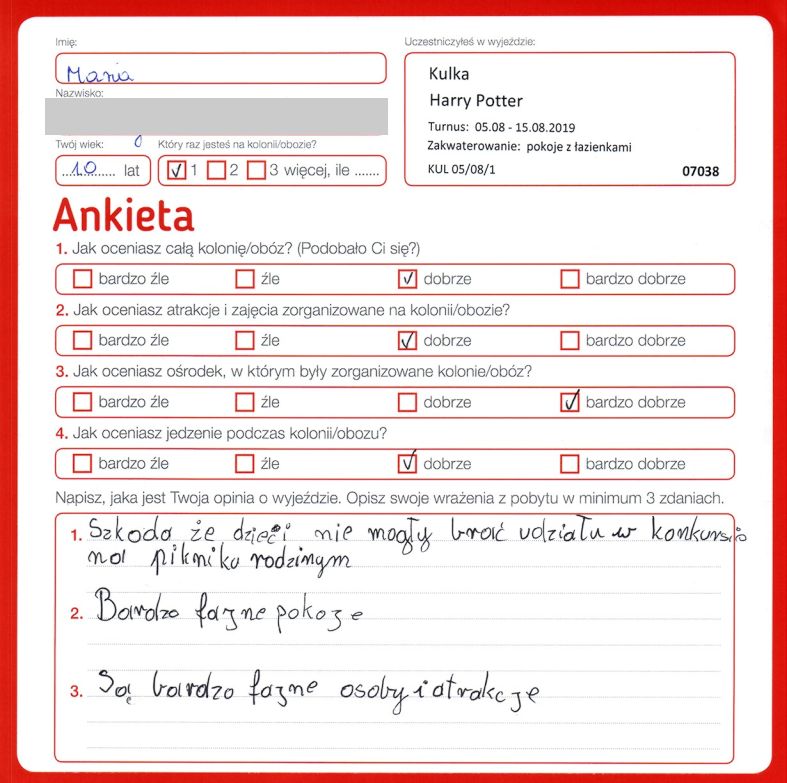 Imię:
Maria
Uczestniczyłeś w wyjeździe:
Kulka
Harry Potter
Turnus: 05.08 - 15.08.2019
Zakwaterowanie: pokoje z łazienkami
KUL 05/08/1 07038
Nazwisko:
Twój wiek:
10 lat
Który raz jesteś na kolonii/obozie?
1 2 3 więcej, ile .......
Ankieta
1. Jak oceniasz całą kolonię/obóz? (Podobało Ci się?)
bardzo źle źle dobrze bardzo dobrze
2. Jak oceniasz atrakcje i zajęcia zorganizowane na kolonii/obozie?
bardzo źle źle dobrze bardzo dobrze
3. Jak oceniasz ośrodek, w którym były zorganizowane kolonie/obóz?
bardzo źle źle dobrze bardzo dobrze
4. Jak oceniasz jedzenie podczas kolonii/obozu?
bardzo źle źle dobrze bardzo dobrze
Napisz, jaka jest Twoja opinia o wyjeździe. Opisz swoje wrażenia z pobytu w minimum 3 zdaniach.
1. Szkoda że dzieci nie mogły brać udziału w konkursie
na pikniku rodzinym
2. Bardzo fajne pokoje
3. Są bardzo fajne osoby i atrakcje